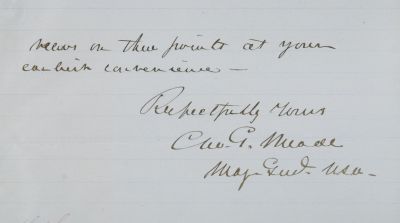 views on these points at your
earliest convenience —
Respectfully Yours
Geo. G. Meade
Maj. Genl. USA -